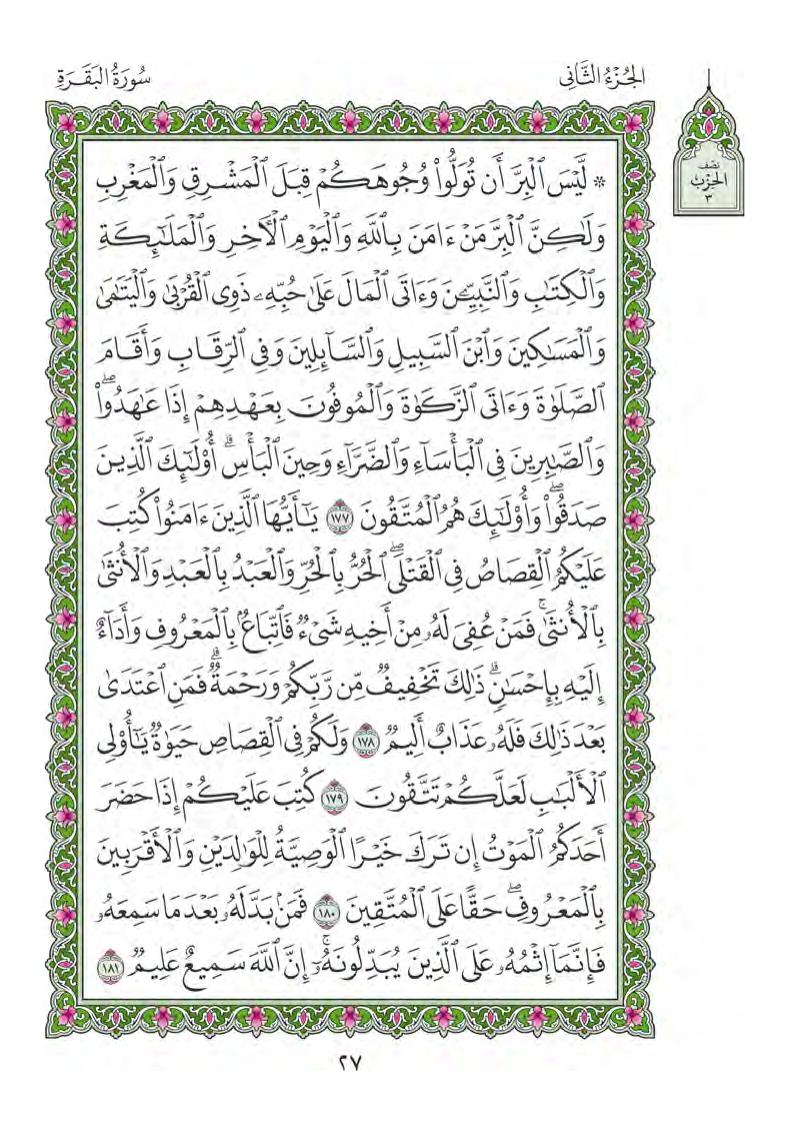 الجُزْءُ الثَّانِي
سُورَةُ البَقَرَةِ
نصف
الحِزْب
٣
۞ لَّيۡسَ ٱلۡبِرَّ أَن تُوَلُّواْ وُجُوهَكُمۡ قِبَلَ ٱلۡمَشۡرِقِ وَٱلۡمَغۡرِبِ
وَلَٰكِنَّ ٱلۡبِرَّ مَنۡ ءَامَنَ بِٱللَّهِ وَٱلۡيَوۡمِ ٱلۡأٓخِرِ وَٱلۡمَلَٰٓئِكَةِ
وَٱلۡكِتَٰبِ وَٱلنَّبِيِّـۧنَ وَءَاتَى ٱلۡمَالَ عَلَىٰ حُبِّهِۦ ذَوِي ٱلۡقُرۡبَىٰ وَٱلۡيَتَٰمَىٰ
وَٱلۡمَسَٰكِينَ وَٱبۡنَ ٱلسَّبِيلِ وَٱلسَّآئِلِينَ وَفِي ٱلرِّقَابِ وَأَقَامَ
ٱلصَّلَوٰةَ وَءَاتَى ٱلزَّكَوٰةَ وَٱلۡمُوفُونَ بِعَهۡدِهِمۡ إِذَا عَٰهَدُواْۖ
وَٱلصَّٰبِرِينَ فِي ٱلۡبَأۡسَآءِ وَٱلضَّرَّآءِ وَحِينَ ٱلۡبَأۡسِۗ أُوْلَٰٓئِكَ ٱلَّذِينَ
صَدَقُواْۖ وَأُوْلَٰٓئِكَ هُمُ ٱلۡمُتَّقُونَ ١٧٧ يَٰٓأَيُّهَا ٱلَّذِينَ ءَامَنُواْ كُتِبَ
عَلَيۡكُمُ ٱلۡقِصَاصُ فِي ٱلۡقَتۡلَىۖ ٱلۡحُرُّ بِٱلۡحُرِّ وَٱلۡعَبۡدُ بِٱلۡعَبۡدِ وَٱلۡأُنثَىٰ
بِٱلۡأُنثَىٰۚ فَمَنۡ عُفِيَ لَهُۥ مِنۡ أَخِيهِ شَيۡءٞ فَٱتِّبَاعُۢ بِٱلۡمَعۡرُوفِ وَأَدَآءٌ
إِلَيۡهِ بِإِحۡسَٰنٖۗ ذَٰلِكَ تَخۡفِيفٞ مِّن رَّبِّكُمۡ وَرَحۡمَةٞۗ فَمَنِ ٱعۡتَدَىٰ
بَعۡدَ ذَٰلِكَ فَلَهُۥ عَذَابٌ أَلِيمٞ ١٧٨ وَلَكُمۡ فِي ٱلۡقِصَاصِ حَيَوٰةٞ يَٰٓأُوْلِي
ٱلۡأَلۡبَٰبِ لَعَلَّكُمۡ تَتَّقُونَ ١٧٩ كُتِبَ عَلَيۡكُمۡ إِذَا حَضَرَ
أَحَدَكُمُ ٱلۡمَوۡتُ إِن تَرَكَ خَيۡرًا ٱلۡوَصِيَّةُ لِلۡوَٰلِدَيۡنِ وَٱلۡأَقۡرَبِينَ
بِٱلۡمَعۡرُوفِۖ حَقًّا عَلَى ٱلۡمُتَّقِينَ ١٨٠ فَمَنۢ بَدَّلَهُۥ بَعۡدَ مَا سَمِعَهُۥ
فَإِنَّمَآ إِثۡمُهُۥ عَلَى ٱلَّذِينَ يُبَدِّلُونَهُۥٓۚ إِنَّ ٱللَّهَ سَمِيعٌ عَلِيمٞ ١٨١
٢٧